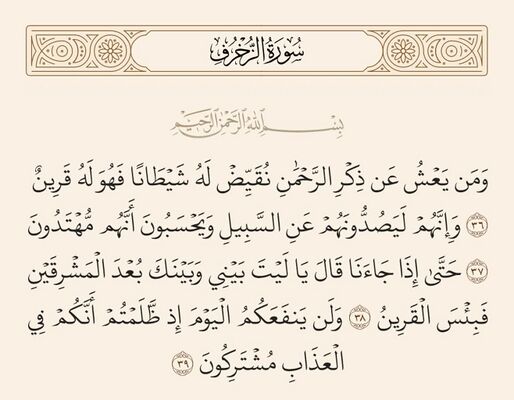 سُورَةُ الزُّخْرُفِ
بِسْمِ اللَّهِ الرَّحْمَٰنِ الرَّحِيمِ
وَمَن يَعْشُ عَن ذِكْرِ الرَّحْمَٰنِ نُقَيِّضْ لَهُ شَيْطَانًا فَهُوَ لَهُ قَرِينٌ
٣٦ وَإِنَّهُمْ لَيَصُدُّونَهُمْ عَنِ السَّبِيلِ وَيَحْسَبُونَ أَنَّهُم مُّهْتَدُونَ
٣٧ حَتَّىٰ إِذَا جَاءَنَا قَالَ يَا لَيْتَ بَيْنِي وَبَيْنَكَ بُعْدَ الْمَشْرِقَيْنِ
فَبِئْسَ الْقَرِينُ ٣٨ وَلَن يَنفَعَكُمُ الْيَوْمَ إِذ ظَّلَمْتُمْ أَنَّكُمْ فِي
الْعَذَابِ مُشْتَرِكُونَ ٣٩